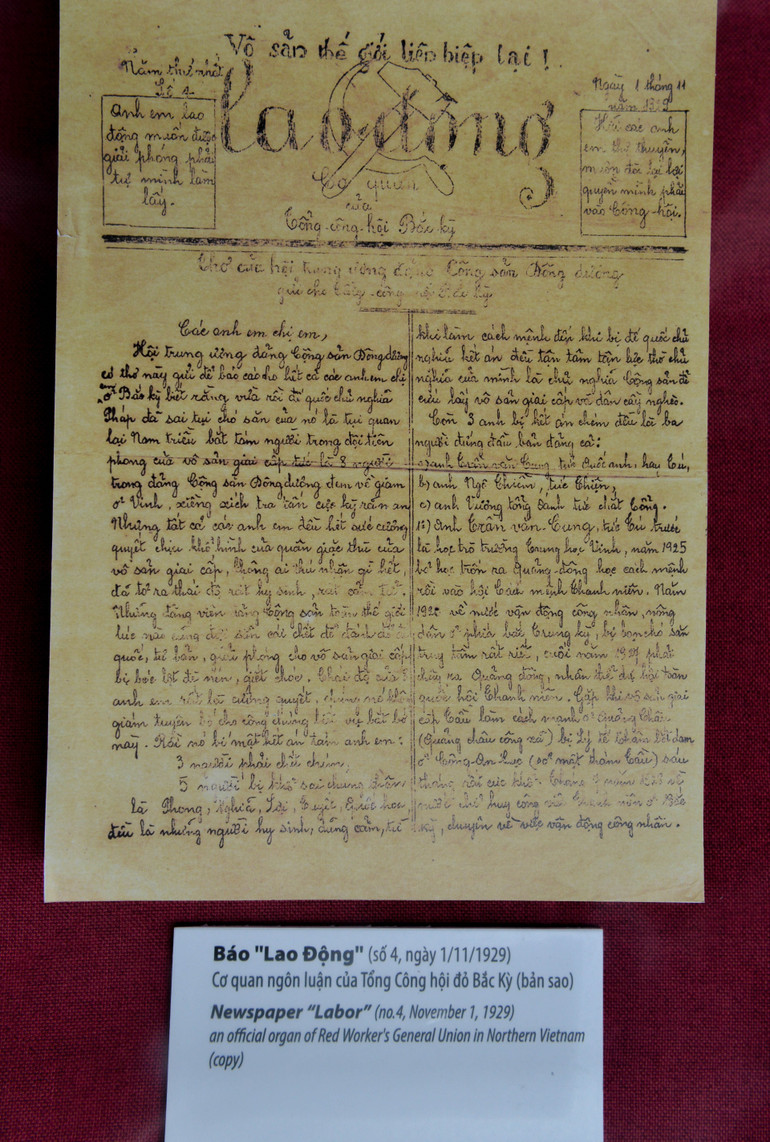 Vô sản thế giới liên hiệp lại!
Năm thứ nhất
Số 4
Ngày 1 tháng 11
năm 1929
Anh em lao
động muốn được
giải phóng phải
tự mình làm
lấy.
Lao động
Hỡi các anh
em, thợ thuyền,
muốn đòi lại lợi
quyền mình phải
vào Công-hội.
Cơ quan
của
Tổng-công-hội Bắc kỳ
Thơ của hội trung ương đảng Cộng sản Đông dương
gửi cho Tổng-công-hội Bắc kỳ
Các anh em chị em,
Hội trung ương đảng Cộng sản Đông dương
có thơ này gửi để báo cáo cho hết cả các anh em chị
ở Bắc kỳ biết rằng vừa rồi đế quốc chủ nghĩa
Pháp đã sai tụi chó săn của nó là tụi quan
lại Nam triều bắt tám người trong đội tiên
phong của vô sản giai cấp tức là 8 người
trong đảng Cộng sản Đông dương đem về giam
ở Vinh, xiềng xích tra tấn cực kỳ
Nhưng tất cả các anh em đều hết sức cường
quyết chịu khổ hình của quân giặc thù của
vô sản giai cấp, không ai thú nhận gì hết,
đã tỏ ra thái độ rất hy sinh, rất can
Những đảng viên đảng Cộng sản toàn thế giới
lúc nào cũng đợi sẵn cái chết để đánh đổ đế
quốc, tư bản, giải phóng cho vô sản giai cấp
bị bóc lột đè nén, giết chóc. Thái độ của
anh em rất là cường quyết, chúng nó không
giám tuyên bố cho công chúng biết vụ bắt bớ
này. Rồi nó bí mật kết án tám anh em:
3 người phải chết chém,
5 người bị khổ sai chung thân
là Phong, Nghĩa, Lợi, Tuyết,
đều là những người hy sinh, dũng cảm, từ
khi làm cách mệnh đến khi bị đế quốc chủ
nghĩa kết án đều tận tâm tận lực thờ chủ
nghĩa của mình là chủ nghĩa Cộng sản để
cứu lấy vô sản giai cấp và dân cày nghèo.
Còn 3 anh bị kết án chém đều là ba
người đứng đầu bản đảng cả:
a) anh Trần văn Cung tức Quốc anh, hay Tú,
b) anh Ngô Thiêm, tức Thiện,
c) anh Vương tổng Sanh tức chất Công.
1º) Anh Trần văn-Cung, tức Tú trước
là học trò trường Trung học Vinh, năm 1925
bỏ học trốn ra Quảng-đông học cách mệnh
rồi vào hội Cách mệnh thanh niên. Năm
về nước vận động công nhân, nông
dân ở phía bắc Trung kỳ, bị bọn chó săn
truy tầm rất riết, cuối năm 1927 phải
chạy ra Quảng đông, nhân thể dự hội toàn
quốc hội Thanh niên. Gặp khi vô sản giai
cấp Tầu làm cách mạnh ở Quảng Châu
(Quảng châu công xã) bị Lý tế Thâm bắt giam
ở Công-An-cục (sở mật thám Tầu) sáu
tháng rồi cực khổ. Tháng năm
người chỉ huy công Thanh niên ở Bắc
kỳ, chuyên về việc vận động công nhân.
Báo "Lao Động" (số 4, ngày 1/11/1929)
Cơ quan ngôn luận của Tổng Công hội đỏ Bắc Kỳ (bản sao)
Newspaper “Labor” (no.4, November 1, 1929)
an official organ of Red Worker's General Union in Northern Vietnam
(copy)